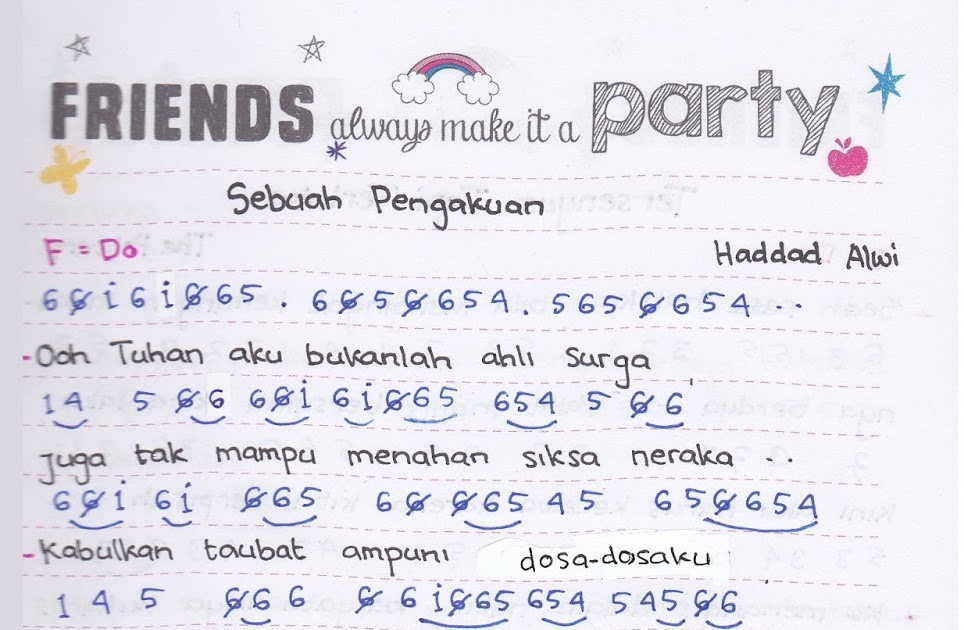 FRIENDS always make it a party
Sebuah Pengakuan
F = Do Haddad Alwi
6 6̸ i 6 i 6̸ 6 5 . 6 6̸ 5 6̸ 6 5 4 . 5 6 5 6̸ 6 5 4 . .
- Ooh Tuhan aku bukanlah ahli surga
1 4 5 6̸ 6 6 6̸ i 6 i 6̸ 6 5 6 5 4 5 6̸ 6
juga tak mampu menahan siksa neraka ..
6 6̸ i 6 i 6̸ 6 5 6 6̸ 6̸ 6 5 4 5 6 5 6̸ 6 5 4
- Kabulkan taubat ampuni dosa-dosaku
1 4 5 6̸ 6 6 6̸ 6 i 6̸ 6 5 6 5 4 5 4 5 6̸ 6